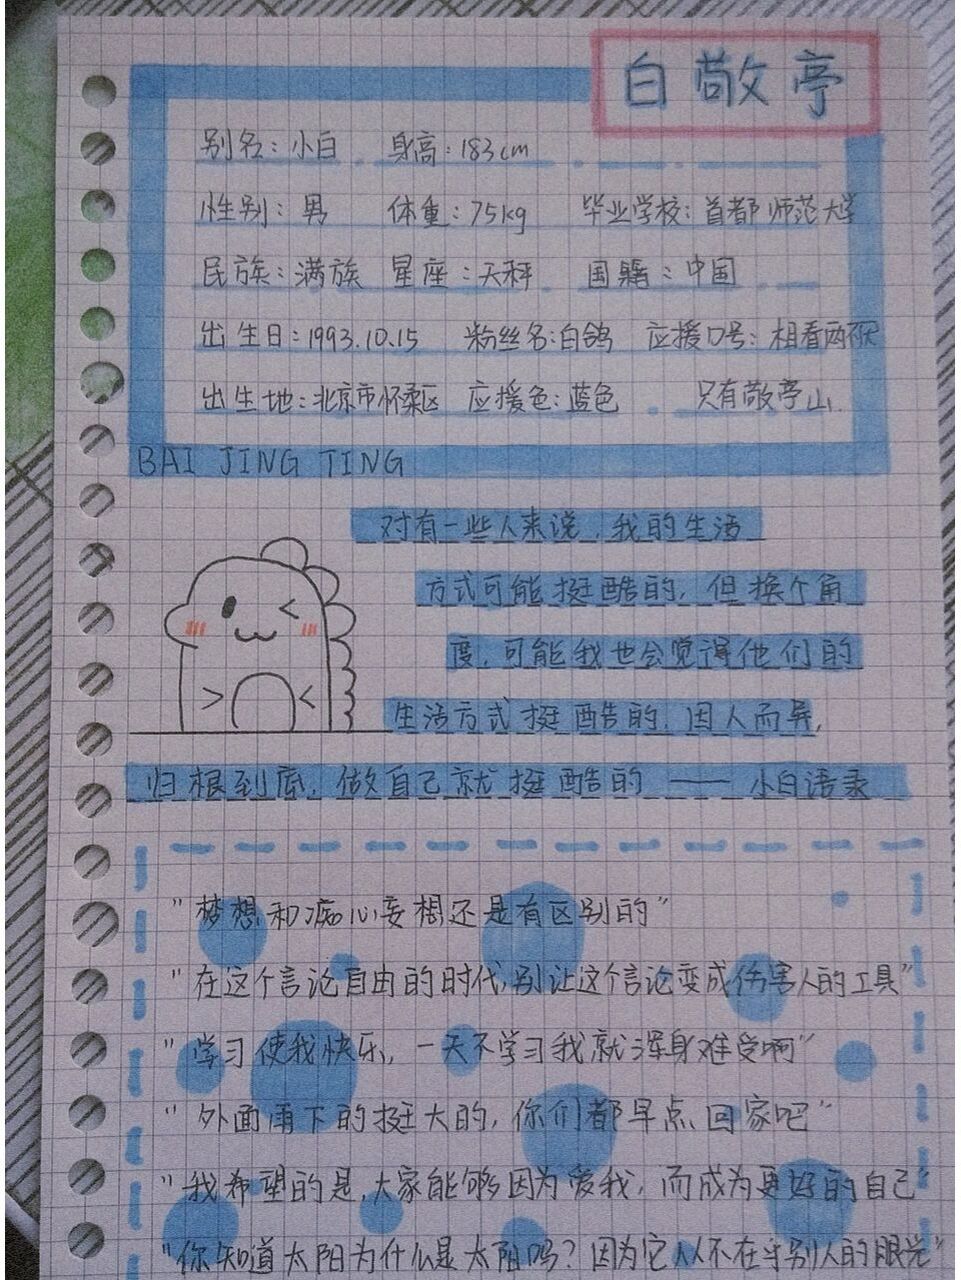 白敬亭
别名：小白 身高：183cm
性别：男 体重：75kg 毕业学校：首都师范大学
民族：满族 星座：天秤 国籍：中国
出生日：1993.10.15 粉丝名：白鸽 应援口号：相看两不厌
出生地：北京市怀柔区 应援色：蓝色 只有敬亭山.
BAI JING TING
对有一些人来说，我的生活
方式可能挺酷的，但换个角
度，可能我也会觉得他们的
生活方式挺酷的，因人而异，
归根到底，做自己就挺酷的 —— 小白语录
"梦想和痴心妄想还是有区别的"
"在这个言论自由的时代，别让这个言论变成伤害人的工具"
"学习使我快乐，一天不学习我就浑身难受啊"
"外面雨下的挺大的，你们都早点回家吧"
"我希望的是，大家能够因为爱我，而成为更好的自己"
"你知道太阳为什么是太阳吗？因为它从不在乎别人的眼光"